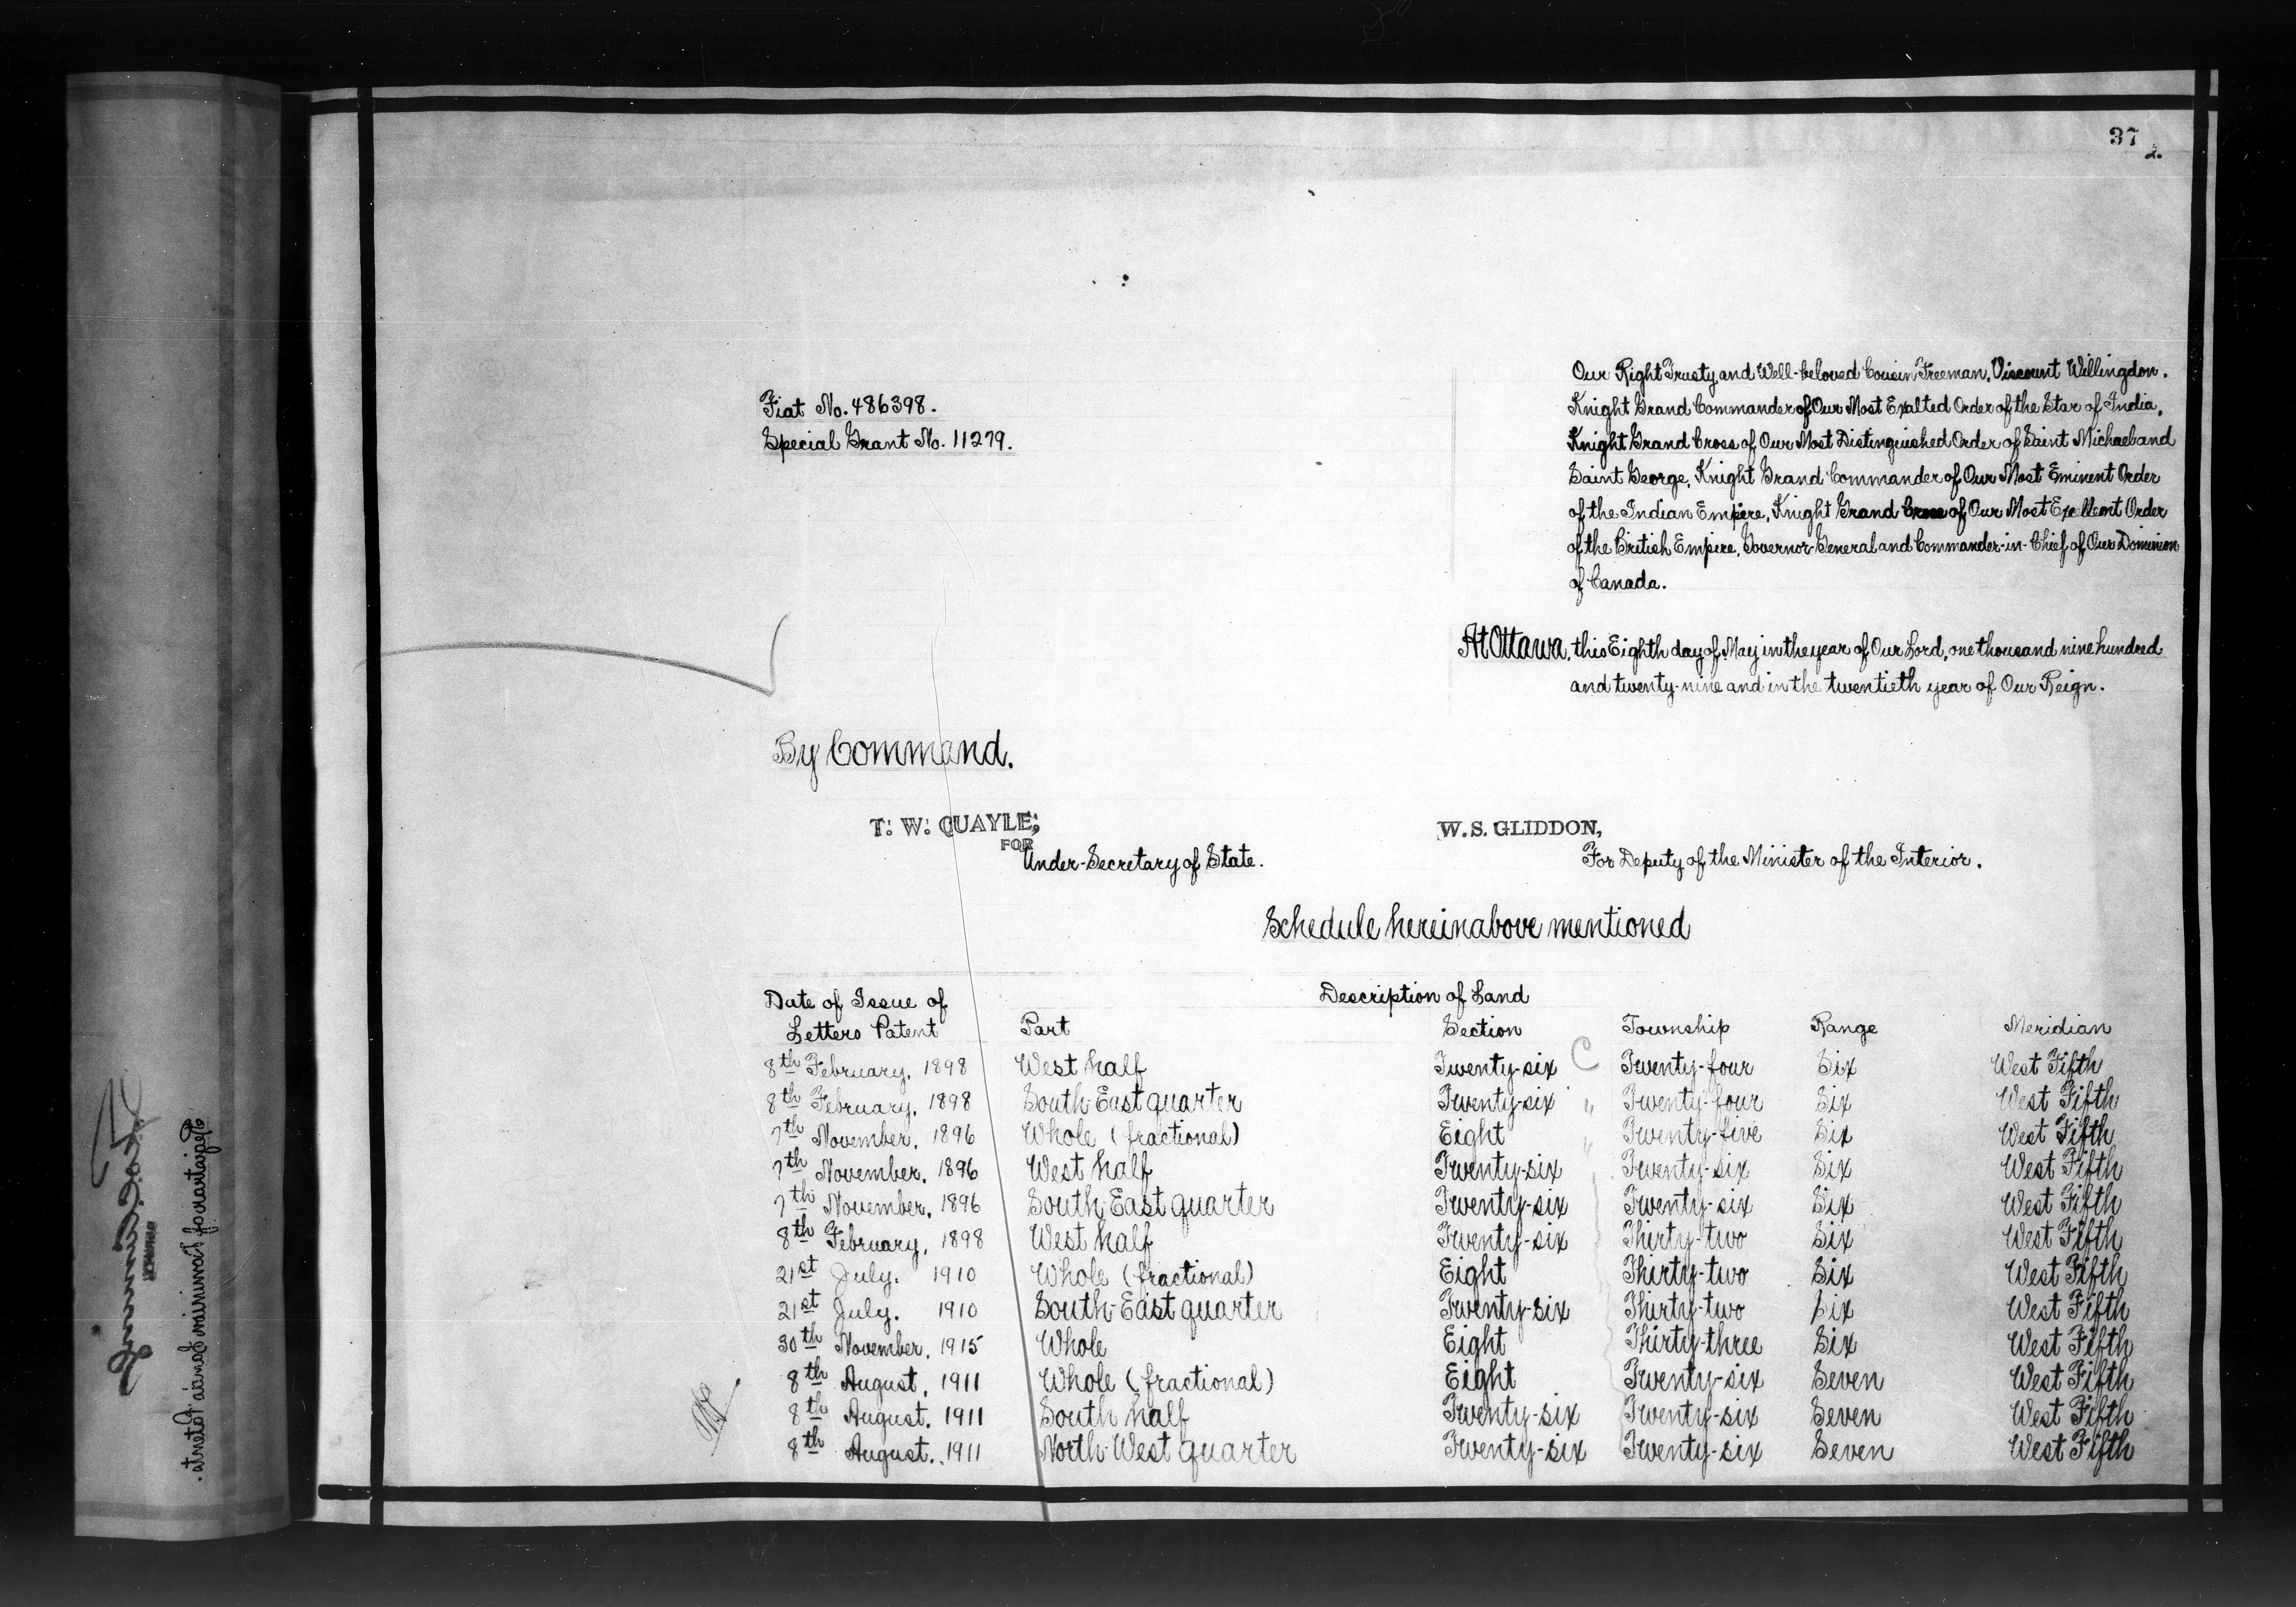 37
2.
Our Right Trusty and Well-beloved Cousin Freeman, Viscount Willingdon,
Knight Grand Commander of Our Most Exalted Order of the Star of India,
Knight Grand Cross of Our Most Distinguished Order of Saint Michael and
Saint George, Knight Grand Commander of Our Most Eminent Order
of the Indian Empire, Knight Grand Cross of Our Most Excellent Order
of the British Empire, Governor General and Commander-in-Chief of Our Dominion
of Canada.
Fiat No. 486398.
Special Grant No. 11279.
At Ottawa, this Eighth day of May in the year of Our Lord, one thousand nine hundred
and twenty-nine and in the twentieth year of Our Reign.
By Command.
T. W. QUAYLE,
FOR
Under-Secretary of State.
W. S. GLIDDON,
For Deputy of the Minister of the Interior.
Schedule hereinabove mentioned
Date of Issue of Description of Land
Letters Patent Part Section Township Range Meridian
8th February, 1898 West half Twenty-six Twenty-four Six West Fifth
8th February, 1898 South-East quarter Twenty-six Twenty-four Six West Fifth
7th November, 1896 Whole (fractional) Eight Twenty-five Six West Fifth
7th November, 1896 West half Twenty-six Twenty-six Six West Fifth
7th November, 1896 South-East quarter Twenty-six Twenty-six Six West Fifth
8th February, 1898 West half Twenty-six Thirty-two Six West Fifth
21st July, 1910 Whole (fractional) Eight Thirty-two Six West Fifth
21st July, 1910 South-East quarter Twenty-six Thirty-two Six West Fifth
30th November, 1915 Whole Eight Thirty-three Six West Fifth
8th August, 1911 Whole (fractional) Eight Twenty-six Seven West Fifth
8th August, 1911 South half Twenty-six Twenty-six Seven West Fifth
8th August, 1911 North-West quarter Twenty-six Twenty-six Seven West Fifth
Registrar of Dominion Lands Patents.